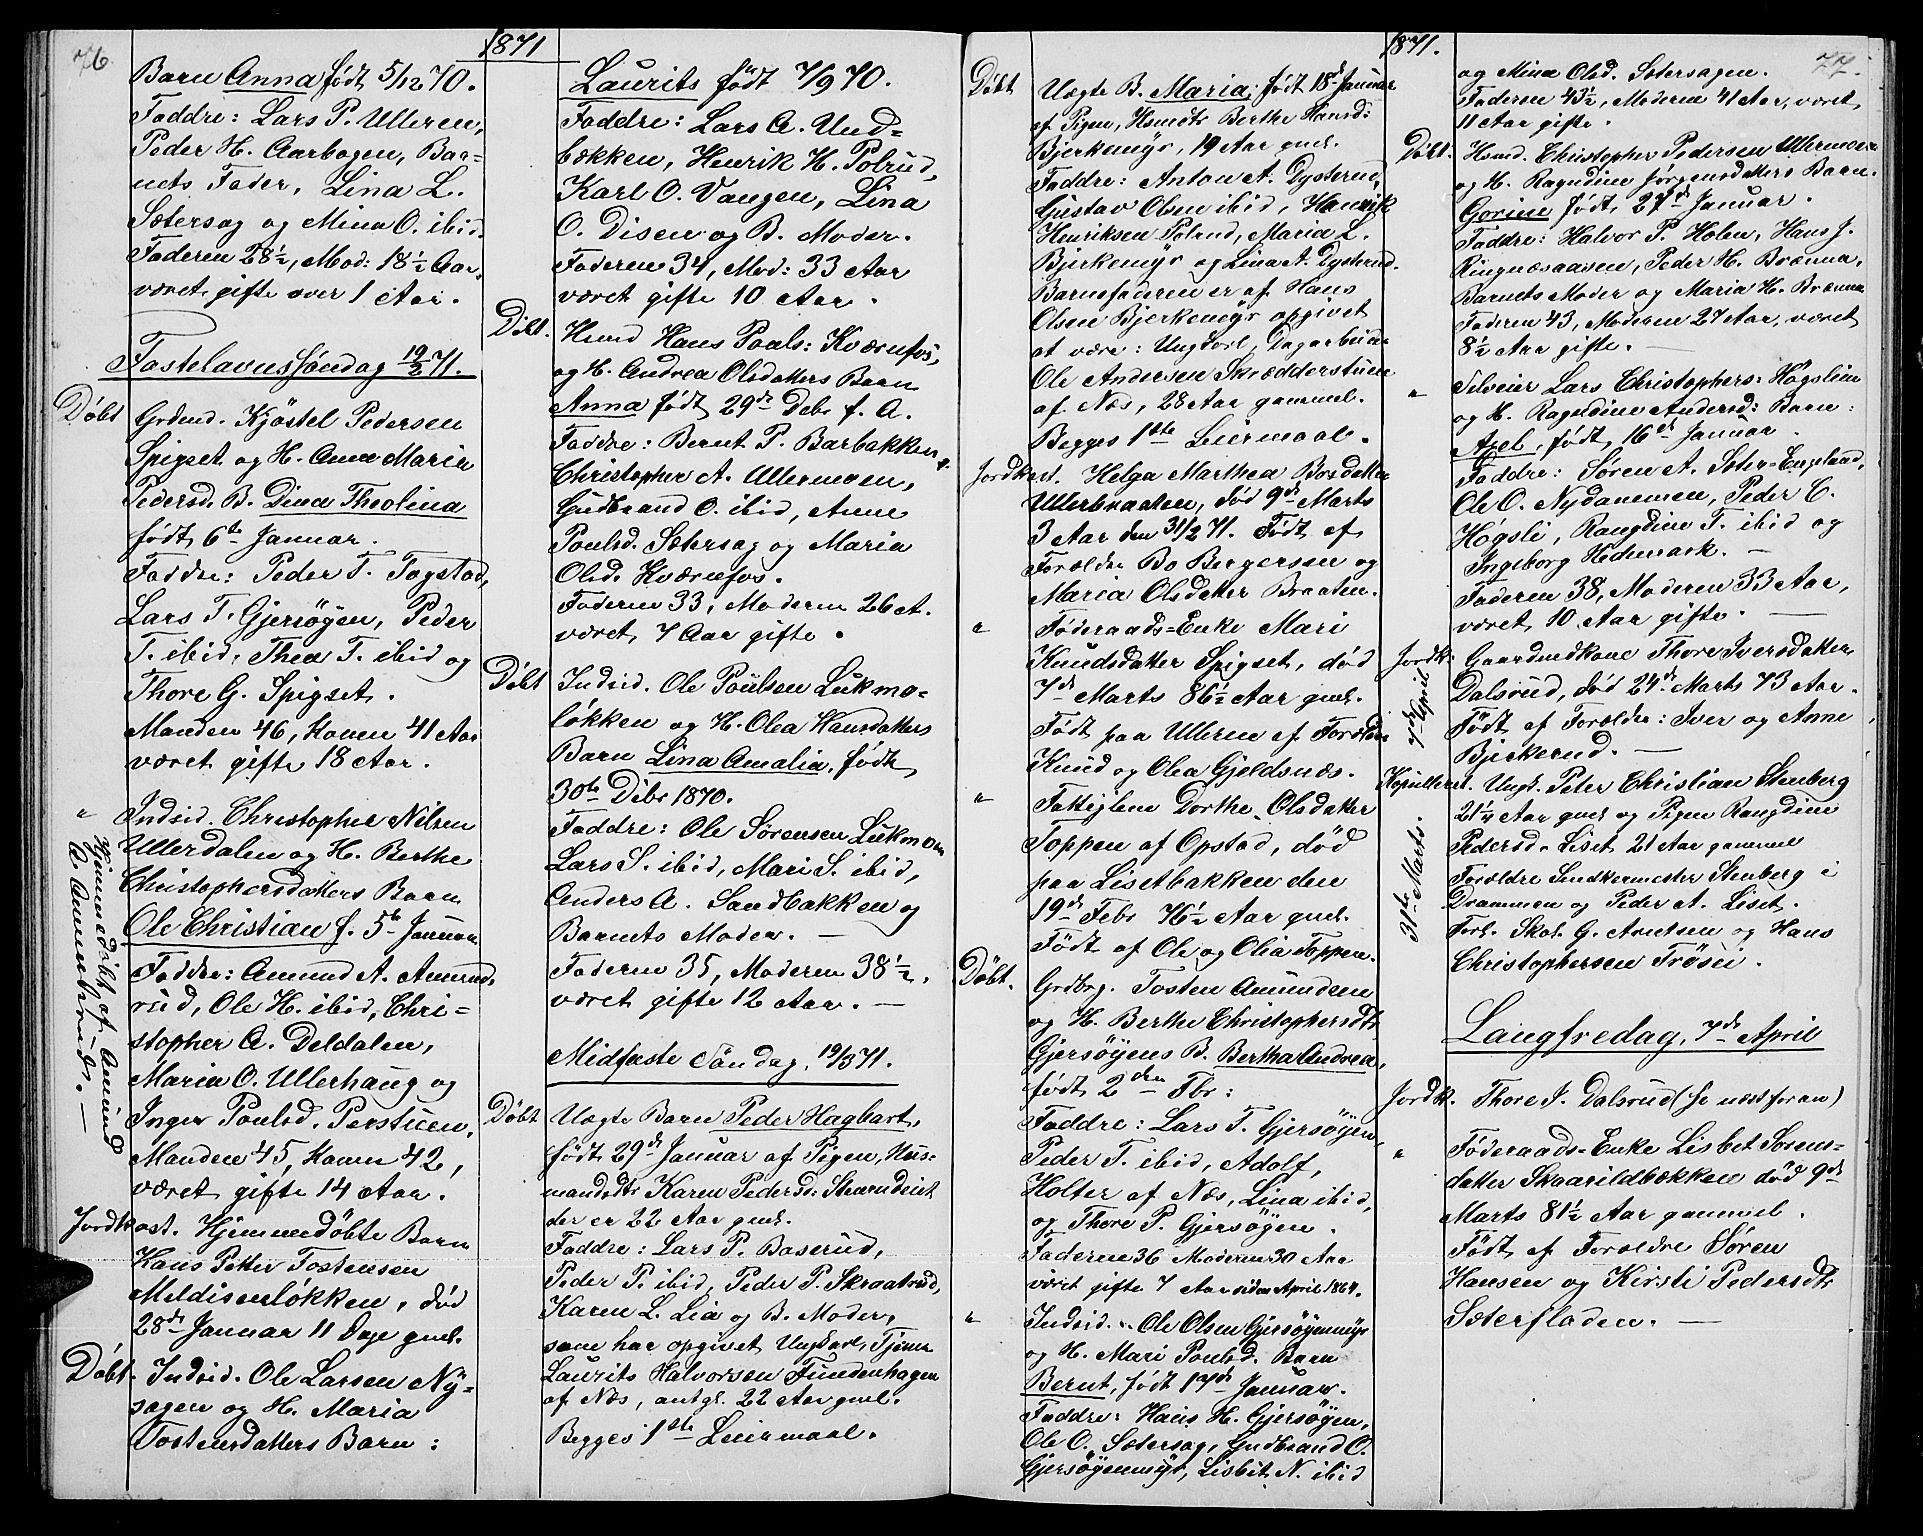 76.
1871
Barn Anna født 5/12 70.
Faddre: Lars P. Ulleren,
Peder H. Aarbogen, Bar=
nets Fader, Lina L.
Sætersag og Mina O. ibid.
Faderen 28½, Mod: 18½ Aar,
været gifte over 1 Aar.
Fastelavnssøndag 19/2 71.
Døbt Grdmd. Kjøstel Pedersen
Spigset og H. Anne Maria
Pedersd. B. Dina Theolina
født 6te Januar.
Faddre: Peder T. Togstad,
Lars T. Gjersøyen, Peder
T. ibid, Thea T. ibid og
Thore G. Spigset.
Manden 46, Konen 41 Aar
været gifte 18 Aar.
" Indsid. Christopher Nilsen
Ullerdalen og H. Berthe
Christophersdatters Barn
Ole Christian f. 5te Januar
Faddre: Amund A. Amund
rud, Ole H. ibid, Chri=
stopher A. Deldalen,
Maria O. Ullerhaug og
Inger Poulsd. Perstuen,
Manden 45, Konen 42,
været gifte 14 Aar.
Hjemmedøbt af Amund
A. Amundrud.
Jordkast. Hjemmedøbte Barn
Hans Petter Tostensen
Meldisenløkken, død
28de Januar 11 Dage gml.
Døbt. Indsid. Ole Larsen Ny=
sagen og H. Maria
Tostensdatters Barn:
Laurits født 7/9 70.
Faddre: Lars A. Und=
bækken, Henrik H. Polrud,
Karl O. Vangen, Lina
O. Disen og B. Moder.
Faderen 34, Mod: 33 Aar
været gifte 10 Aar.
Døbt. Hsmd Hans Pouls: Kværnfos,
og H. Andrea Olsdatters Barn
Anna født 29de Debr f. A.
Faddre: Bernt P. Barbakken,
Christopher A. Ullermoen,
Gudbrand O. ibid, Anne
Poulsd. Sætersag og Maria
Olsd. Kværnfos.
Faderen 33, Moderen 26 A.
været 7 Aar gifte.
Døbt Indsid. Ole Poulsen Lukmo=
løkken og H. Olea Hansdatters
Barn Lina Amalia, født
30te Debr 1870.
Faddre: Ole Sørensen Lukmoen
Lars S. ibid, Mari S. ibid,
Anders A. Sandbakken og
Barnets Moder. —
Faderen 35, Moderen 38½,
været gifte 12 Aar. —
Midfaste Søndag, 19/3 71.
Døbt Uægte Barn Peder Hagbart,
født 29de Januar af Pigen, Hus=
mandsdtr Karen Pedersd. Stenrudeiet
der er 22 Aar gml.
Faddre: Lars P. Baserud,
Peder P. ibid, Peder P. Skraatrud,
Karen L. Lia og B. Moder,
som har opgivet Ungkarl, Tjener
Laurits Halvorsen Fundenhagen
af Næs, antgl. 22 Aar gml.
Begges 1ste Leiermaal.
1871.
77.
Døbt Uægte B. Maria: født 18de Januar
af Pigen, Hsmdts Berthe Hansd:
Bjerkemyr, 19 Aar gml.
Faddre: Anton A. Dysterud,
Gustav Olsen ibid, Henrik
Henriksen Polrud, Maria L.
Bjerkemyr og Lina A. Dysterud.
Barnefaderen er af Hans
Olsen Bjerkemyr opgivet
at være: Ungkarl, Dagarbeider
Ole Andersen Skrædderstuen
af Næs, 28 Aar gammel.
Begges 1ste Leiermaal.
Jordkast. Helga Marthea Bosdatter
Ullerbraaten, død 9de Marts
3 Aar den 31/2 71. Født af
Forældre Bo Bergersen og
Maria Olsdatter Braaten.
" Føderaads=Enke Mari
Knudsdatter Spigset, død
7de Marts 86½ Aar gml.
Født paa Ulleren af Forældre
Knud og Olea Gjeldsnæs.
" Fattiglem Dorthe Olsdatter
Toppen af Opstad, død
paa Lisetbakken den
19de Febr 76½ Aar gml.
Født af Ole og Olia Toppen.
Døbt. Grdbrg. Tosten Amundsen
og H. Berthe Christophersdtr
Gjersøyens B. Bertha Andrea,
født 2den Fbr:
Faddre: Lars T. Gjersøyen,
Peder T. ibid, Adolf,
Holter af Næs, Lina ibid,
og Thore P. Gjersøyen.
Faderen 36 Moderen 30 Aar
været gifte 7 Aar siden April 1864.
" Indsid. Ole Olsen Gjersøyenmyr
og H. Mari Poulsd. Barn
Bernt, født 17de Januar.
Faddre: Hans H. Gjersøyen,
Ole O. Sætersag, Gudbrand O.
Gjersøyenmyr, Lisbet N. ibid
og Mina Olsd. Sætersagen.
Faderen 43½, Moderen 41 Aar, været
11 Aar gifte.
Døbt. Hsmd. Christopher Pedersen Ullermoen
og H. Ragndine Jørgensdatters Barn.
Gorine født 27de Januar.
Faddre: Halvor P. Holen, Hans J.
Ringnæsaasen, Peder H. Brænna,
Barnets Moder og Maria H. Brænna
Faderen 43, Moderen 27 Aar, været
8½ Aar gifte. —
" Selveier Lars Christophers: Høgslien
og H. Ragndine Andersd: Barn:
Axel, født 16de Januar.
Faddre: Søren A. Sæter=Engeland,
Ole O. Nydanemoen, Peder C.
Høgsli, Rangdine T. ibid og
Ingeborg Hedemark. —
Faderen 38, Moderen 33 Aar,
været 10 Aar gifte. —
Jordk. 7de April Gaardmdkone Thore Iversdatter
Dalsrud, død 24de Marts 73 Aar.
Født af Forældre: Iver og Anne
Bjerkerud. —
Kopulleret. 31te Marts. Ungk. Peter Christian Stenberg
21¼ Aar gml og Pigen Rangdine
Pedersd. Liset 21 Aar gammel
Forældre Snedkermester Stenberg i
Drammen og Peder A. Liset.
Forl. Skol. G. Arntsen og Hans
Christophersen Trøsei.
Langfredag, 7de April
Jordk. Thore I. Dalsrud (se næst foran)
" Føderaads=Enke Lisbet Sørens=
datter Skaarildbækken død 9de
Marts 81½ Aar gammel.
Født af Forældre Søren
Hansen og Kirsti Pedersdtr
Sæterfladen. —